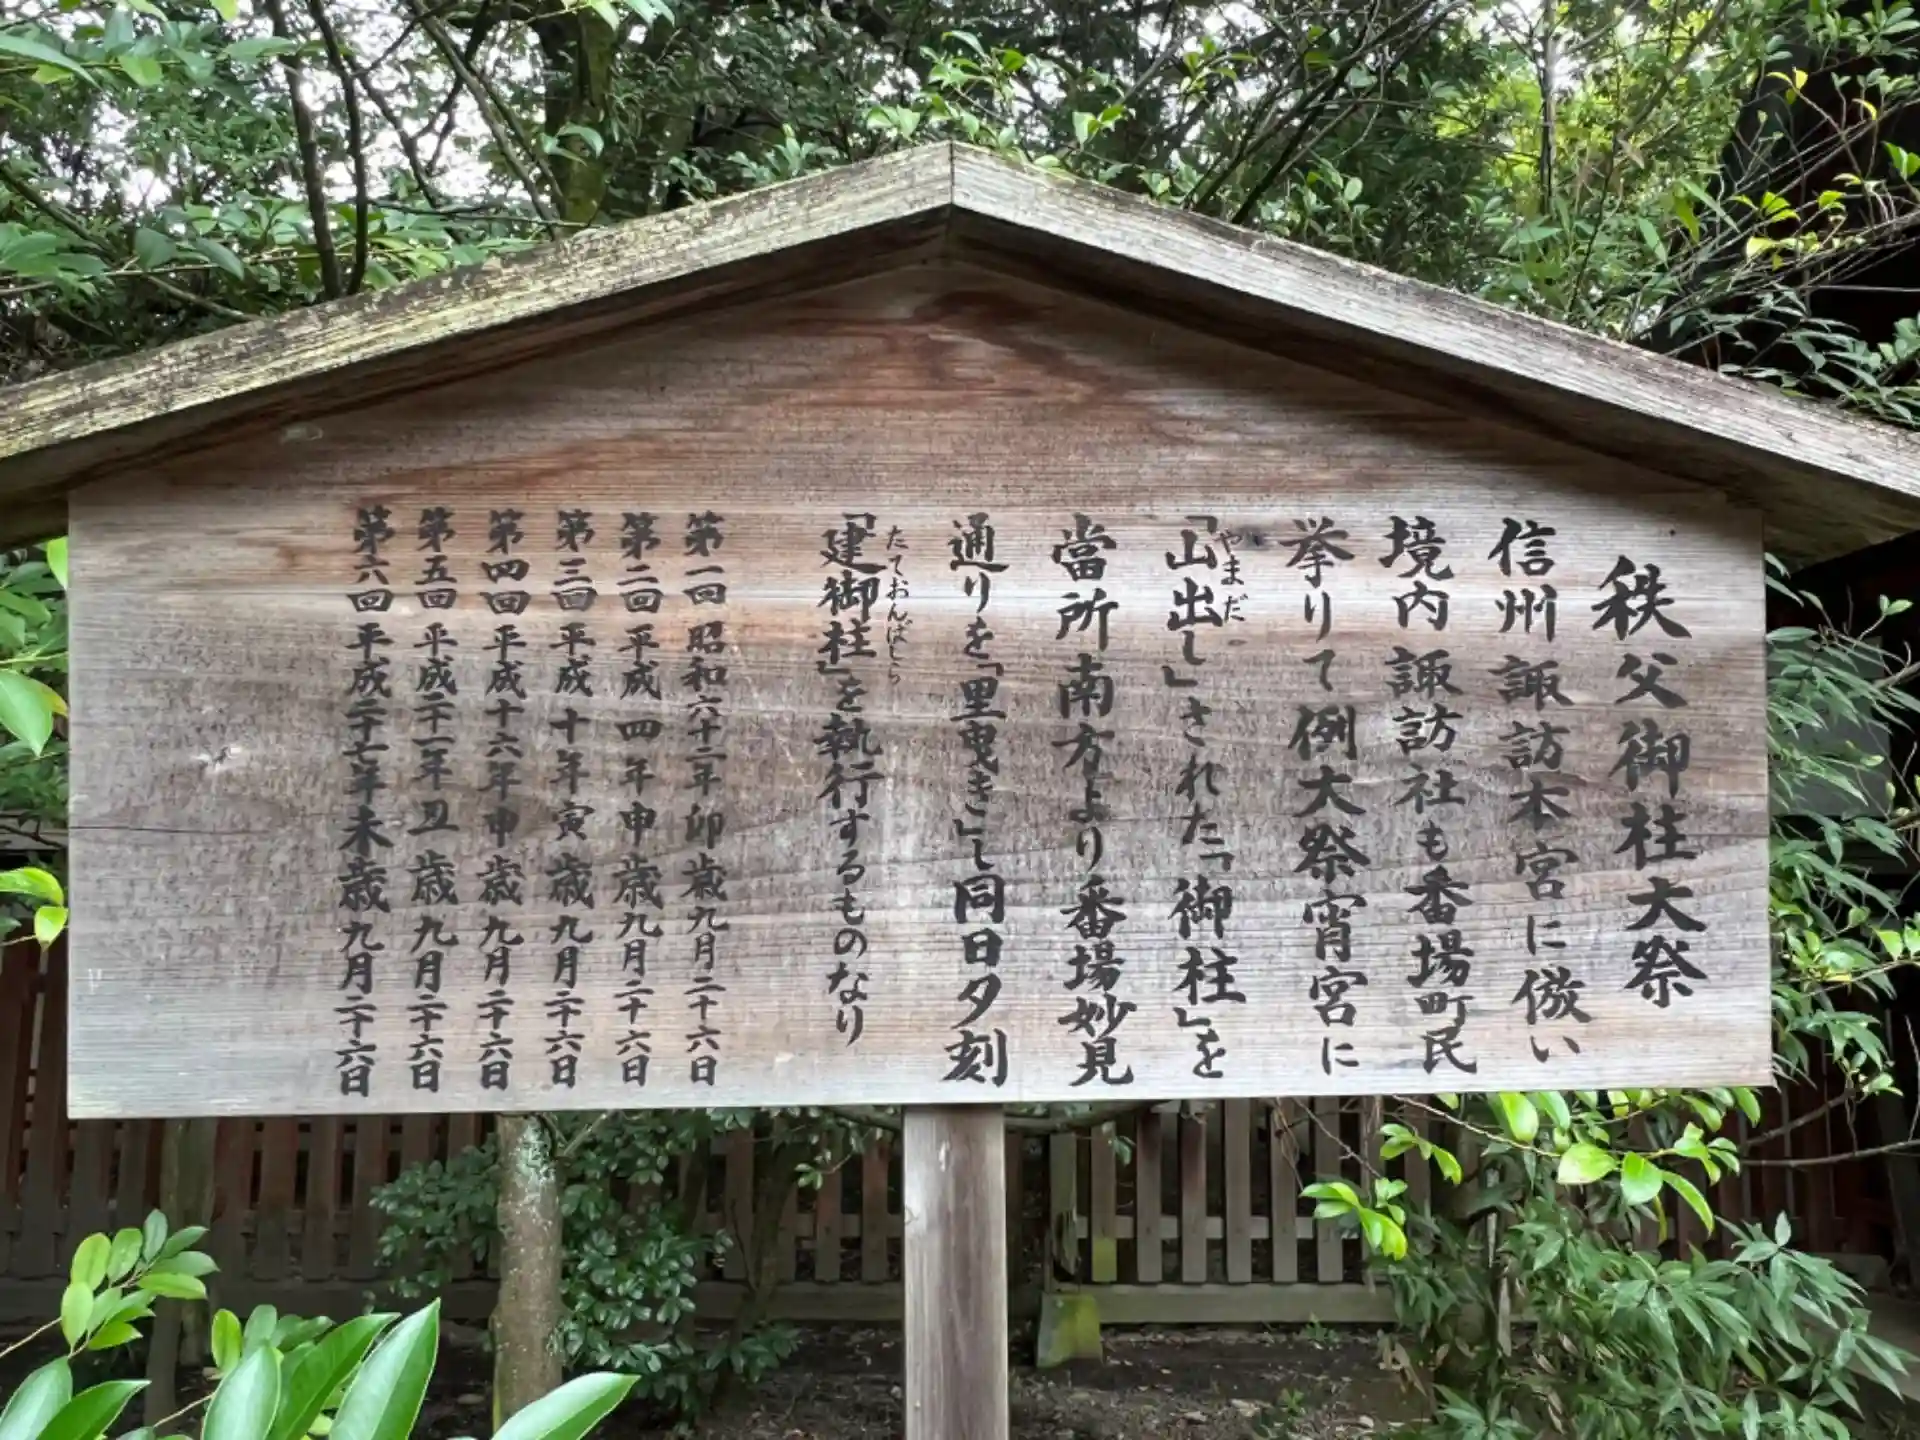 秩父御柱大祭
信州諏訪本宮に倣い
境内諏訪社も番場町民
挙りて例大祭宵宮に
「山出し」された「御柱」を
やまだ
當所南方より番場妙見
通りを「里曳き」し同日夕刻
「建御柱」を執行するものなり
たておんばしら
第一回 昭和六十二年卯歳九月二十六日
第二回 平成四年申歳九月二十六日
第三回 平成十年寅歳九月二十六日
第四回 平成十六年申歳九月二十六日
第五回 平成二十一年丑歳九月二十六日
第六回 平成二十七年未歳九月二十六日